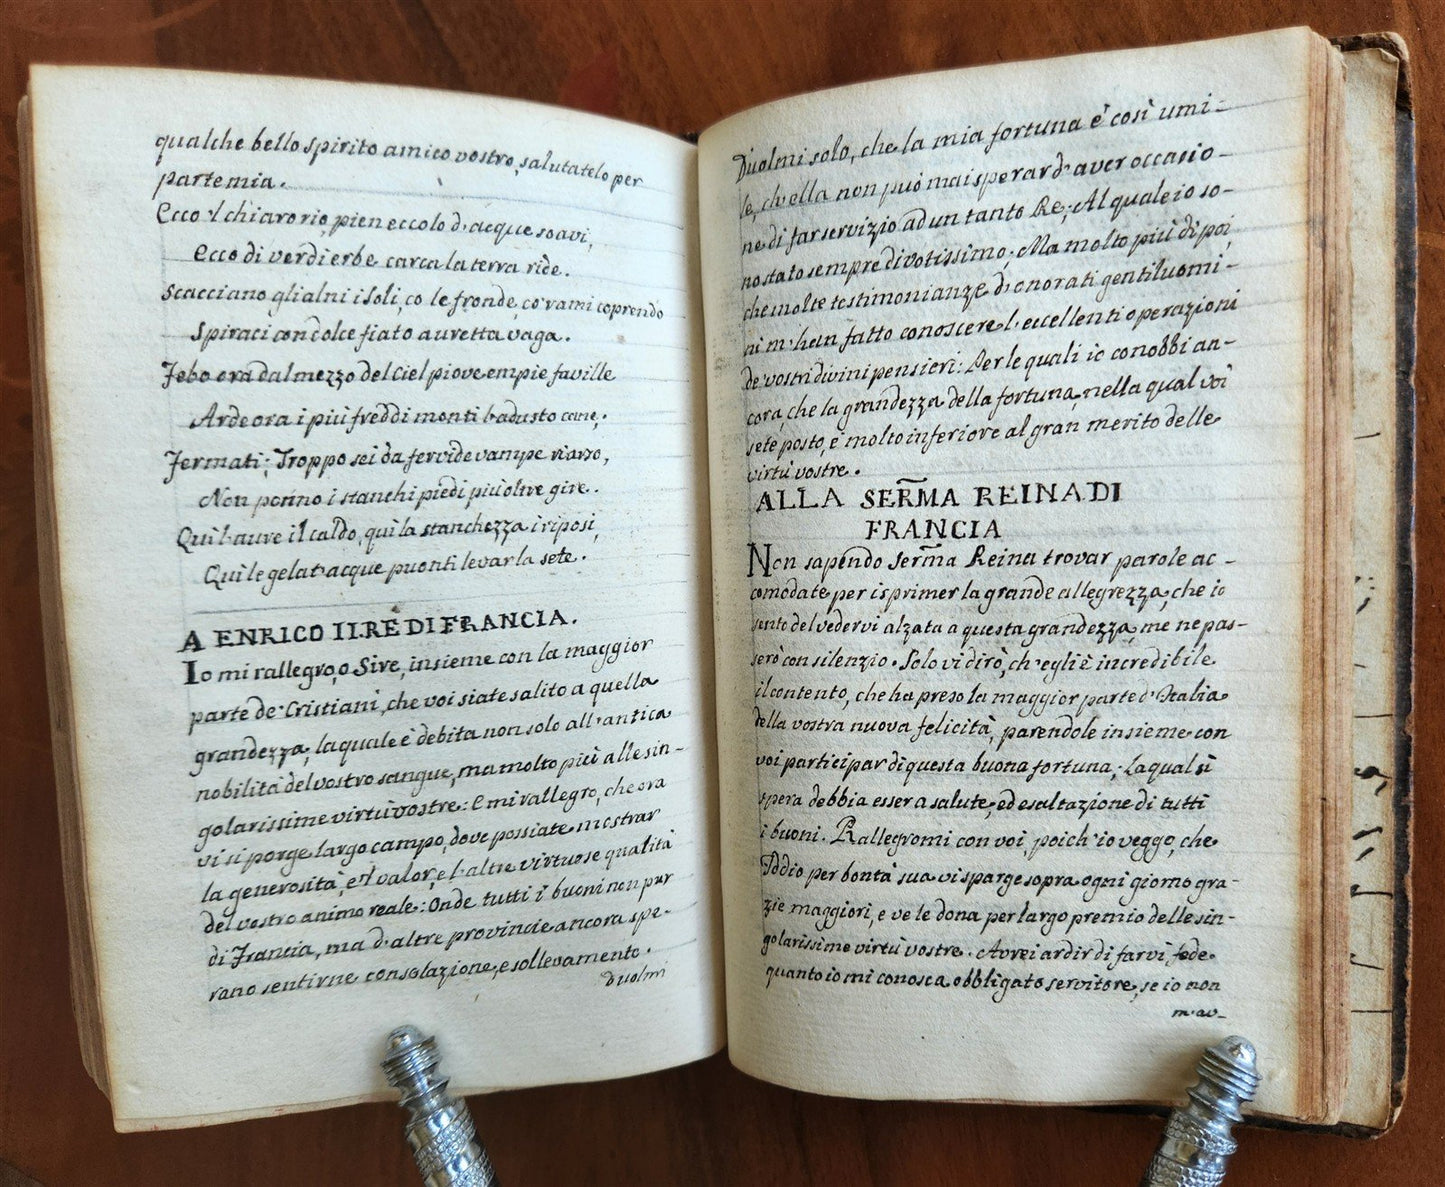 qualche bello spirito amico vostro, salutatelo per
parte mia.
Ecco 'l chiaro rio, pien eccolo d'acque soavi,
ecco di verdi erbe carca la terra ride.
Scacciano gli alni i soli, co le fronde, co' rami coprendo
Spiraci con dolce fiato auretta vaga.
Febo ora dal mezzo del Ciel piove empie faville
Arde ora i più freddi monti l'adusto cane.
Fermati; Troppo sei da fervide vampe riarzo,
Non ponno i stanchi piedi più oltre gire.
Qui l'aure il caldo, qui la stanchezza i riposi,
Qui le gelat'acque puonti levar la sete.
A ENRICO II. RE DI FRANCIA.
Io mi rallegro, o Sire, insieme con la maggior
parte de' Cristiani, che voi siate salito a quella
grandezza, la quale è debita non solo all'antica
nobilità del vostro sangue, ma molto più alle sin-
golarissime virtù vostre: E mi rallegro, che ora
vi si porge largo campo, dove possiate mostrar
la generosità, e 'l valor, e l'altre virtuose qualità
del vostro animo reale: Onde tutti i buoni non pur
di Francia, ma d'altre provincie ancora spe-
rano sentirne consolazione, e sollevamento.
Duolmi
Duolmi solo, che la mia fortuna è così umi-
le, ch'ella non può mai sperar d'aver occasio-
ne di far servizio ad un tanto Re; Al quale io so-
no stato sempre divotissimo; Ma molto più di poi,
che molte testimonianze d'onorati gentiluomi-
ni m'han fatto conoscere l'eccellenti operazioni
de' vostri divini pensieri: Per le quali io conobbi an-
cora, che la grandezza della fortuna, nella qual voi
sete posto, è molto inferiore al gran merito delle
virtù vostre.
ALLA SERM̃A REINA DI
FRANCIA
Non sapendo Serm̃a Reina trovar parole ac-
comodate per isprimer la grande allegrezza, che io
sento del vedervi alzata a questa grandezza, me ne pas-
serò con silenzio. Solo vi dirò, ch'egli è incredibile
il contento, che ha preso la maggior parte d'Italia
della vostra nuova felicità, parendole insieme con
voi participar di questa buona fortuna; La qual si
spera debbia esser a salute, ed esaltazione di tutti
i buoni. Rallegromi con voi, poich'io veggo, che
Iddio per bontà sua vi sparge sopra ogni giorno gra-
zie maggiori, e ve le dona per largo premio delle sin-
golarissime virtù vostre. Avrei ardir di farvi fede
quanto io mi conosca obbligato servitore, se io non
m'av-